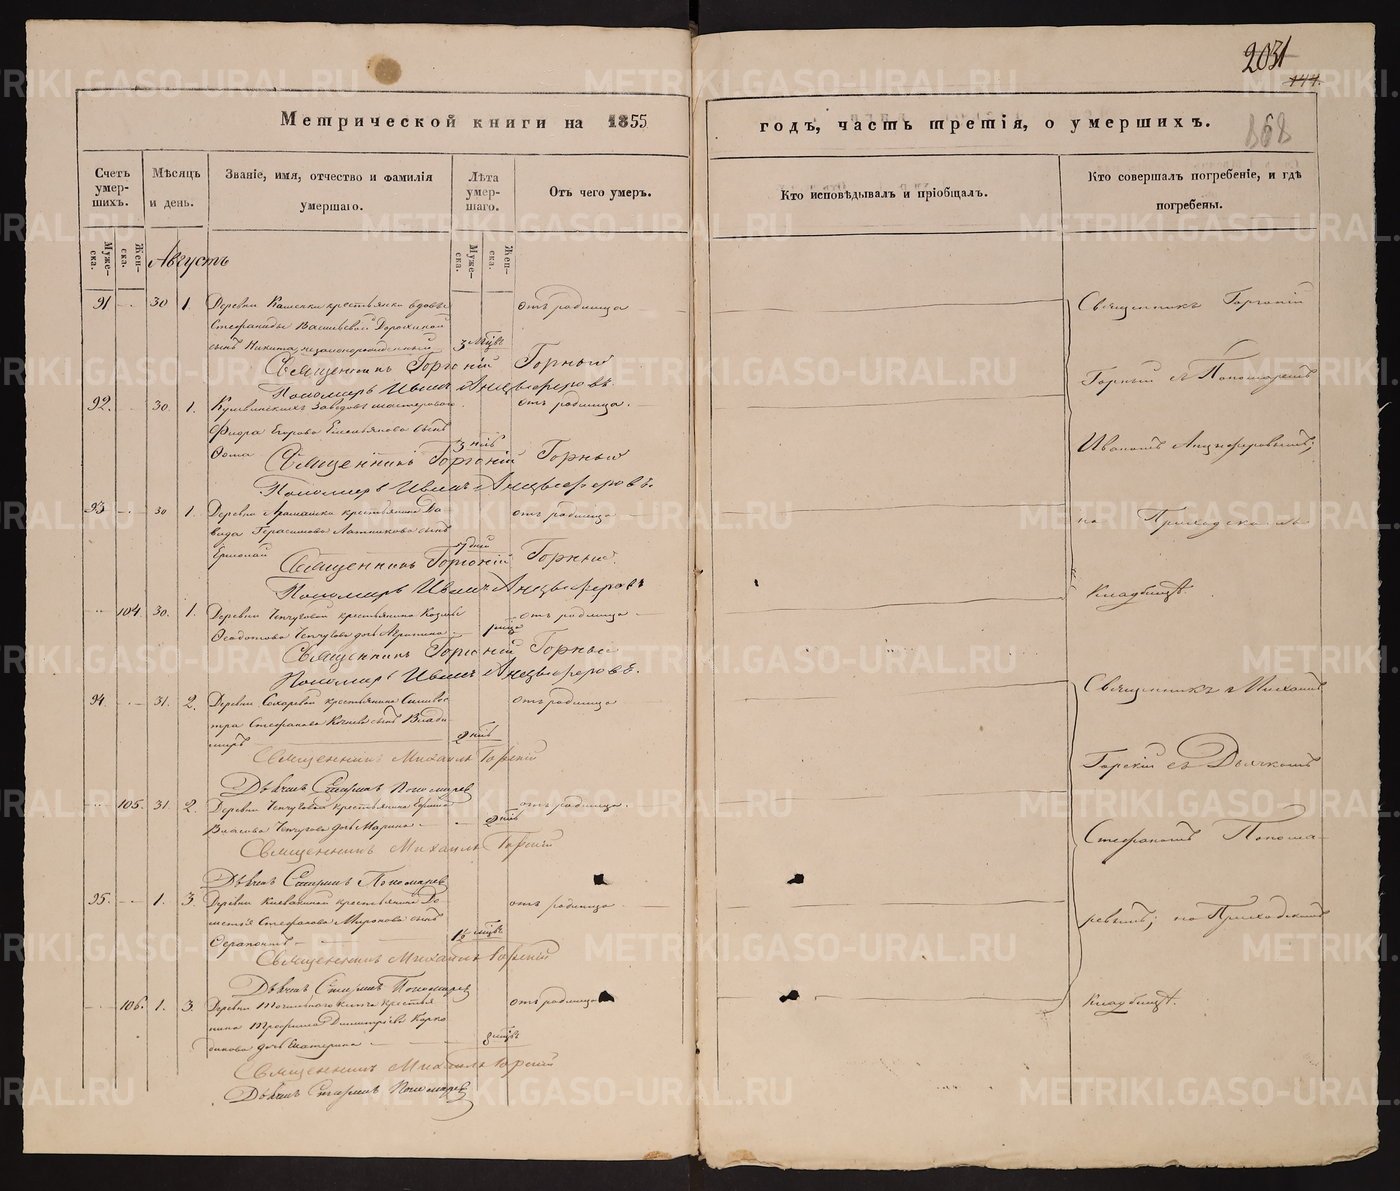 2031
144.
868
Метрической книги на 1855
годъ, часть третія, о умершихъ.
Счетъ умер-шихъ.
Муже-ска.
Жен-ска.
Мѣсяцъ и день.
Званіе, имя, отчество и фамилія умершаго.
Лѣта умер-шаго.
Муже-ска.
Жен-ска.
Отъ чего умеръ.
Кто исповѣдывалъ и пріобщалъ.
Кто совершалъ погребеніе, и гдѣ погребены.
Августъ
91 30 1. Деревни крестьянки вдовы отъ родимца
Стефаниды Васильевой Дорохиной
сынъ Никита незаконнорожденный 3 мѣсц.
Священникъ Горгоній Горный
Пономарь Иванъ Анцыферовъ.
92. 30. 1. Кушвинскихъ заводовъ мастероваго отъ родимца.
Фиора Егорова Емельянова сынъ
Фома 3 нед.
Священникъ Горгоній Горный
Пономарь Иванъ Анцыферовъ.
93 30 1. Деревни крестьянина Да- отъ родимца
вида Герасимова Латникова сынъ
Ермолай 7 дней
Священникъ Горгоній Горный.
Пономарь Иванъ Анцыферовъ
104. 30. 1. Деревни Чепчуговой крестьянина Козьмы отъ родимца
Ѳеодотова Чепчугова дочь Агрипина 1 года
Священникъ Горгоній Горный
Пономарь Иванъ Анцыферовъ.
94. 31. 2. Деревни Сохаревой крестьянина Сильвес- отъ родимца
тра Стефанова сынъ Влади
миръ 2 нед.
Священникъ Михаилъ Горскій
Дьячекъ Стефанъ Пономаревъ
105. 31. 2. Деревни Чепчуговой крестьянина отъ родимца.
Власова Чепчугова дочь Марина 2 нед.
Священникъ Михаилъ Горскій
Дьячекъ Стефанъ Пономаревъ
95. 1. 3. Деревни крестьянина До- отъ родимца
метія Стефанова Миронова сынъ
Серапіонъ 1½ мѣсц.
Священникъ Михаилъ Горскій
Дьячекъ Стефанъ Пономаревъ
106. 1. 3. Деревни Точильнаго ключа крестья отъ родимца
нина Трофима Димитріева Корко
динова дочь Екатерина 8 мѣсц.
Священникъ Михаилъ Горскій
Дьячекъ Стефанъ Пономаревъ
Священникъ Горгоній
Горный съ Пономаремъ
Иваномъ Анцыферовымъ;
на Приходскомъ
Кладбищѣ.
Священникъ Михаилъ
Горскій съ Дьячкомъ
Стефаномъ Понома-
ревымъ; на Приходскомъ
Кладбищѣ.
METRIKI.GASO-URAL.RU